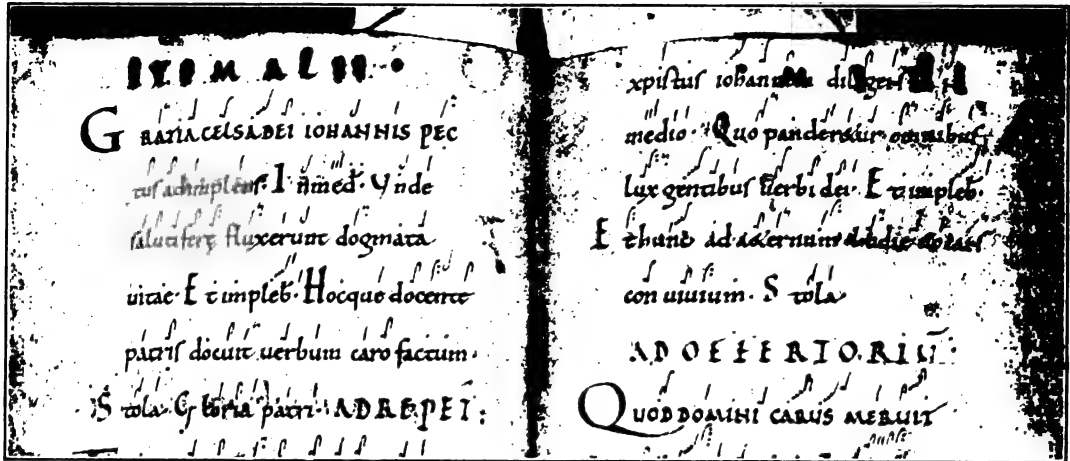 ITEM ALII.
GRATIA CELSA DEI IOHANNIS PEC
tus adimplens. In med. Vnde
salutiferę fluxerunt dogmata
uitae. Et impleb. Hocque docente
patris docuit uerbum caro factum.
Stola. Gloria patri. AD REPET:
xpistus iohannem
medio. Quo panderetur omnibus
lux gentibus uerbi dei. Et impleb.
Et hunc ad aeternum
conuiuium. Stola
AD OFFERTORIŪ.
QUOD DOMINI CARUS MERUIT